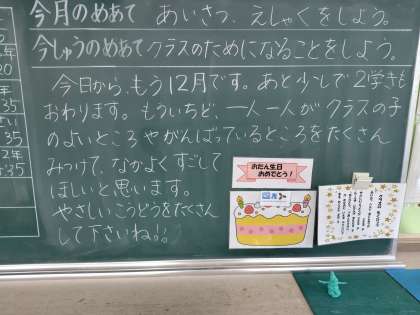 今月のめあて あいさつ、えしゃくをしよう。
今しゅうのめあて クラスのためになることをしよう。
今日から、もう12月です。あと少しで2学きも
おわります。もういちど、一人一人がクラスの子
のよいところやがんばっているところをたくさん
みつけて、なかよくすごして
ほしいと思います。
やさしいこうどうをたくさん
して下さいね!!
おたん生日
おめでとう!
年
20
年
35
さい
35
2年
35